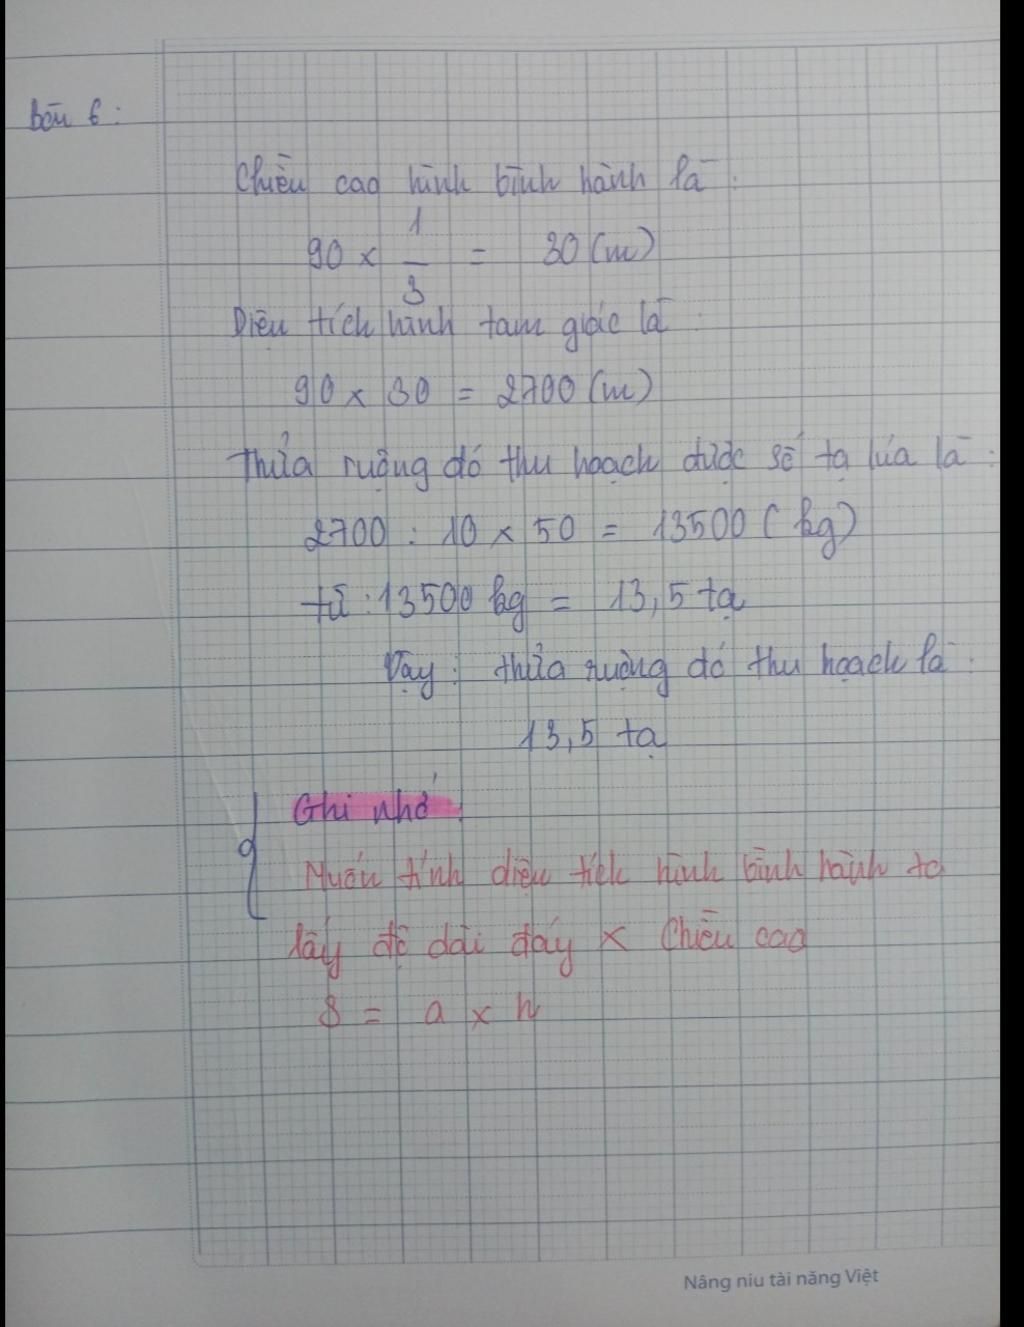 Bài 6:
Chiều cao hình bình hành là:
90 × 1/3 = 30 (m)
Diện tích hình tam giác là:
90 × 30 = 2700 (m)
Thửa ruộng đó thu hoạch được số tạ lúa là:
2700 : 10 × 50 = 13500 (kg)
13500 kg = 13,5 tạ
Vậy: thửa ruộng đó thu hoạch là:
13,5 tạ
Ghi nhớ:
Muốn tính diện tích hình bình hành ta
lấy độ dài đáy × chiều cao
S = a × h
Nâng niu tài năng Việt